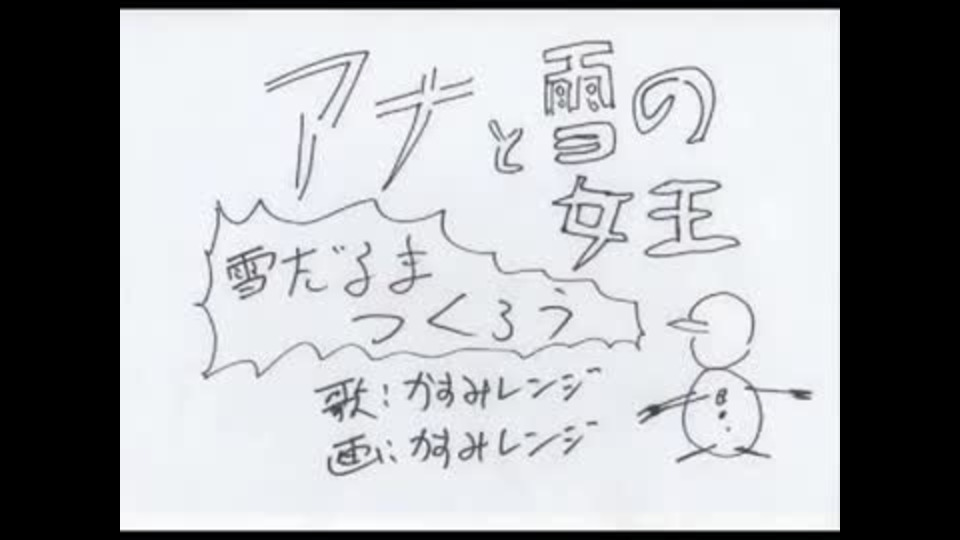 アナと雪の
女王
雪だるま
つくろう
歌:かすみレンジ
画:かすみレンジ